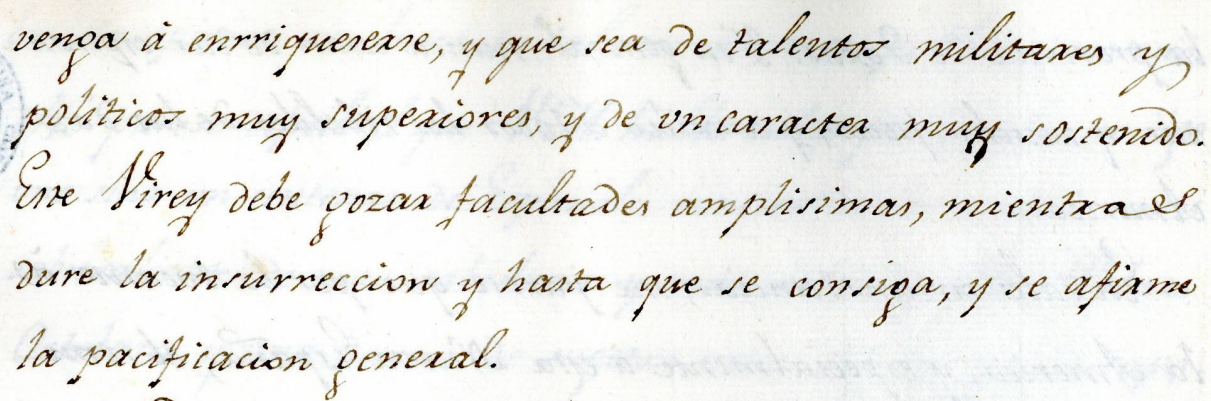 venga à enrriqueserse, y que sea de talentos militares y
politicos muy superiores, y de vn caracter muy sostenido.
Este Virey debe gozar facultades amplisimas, mientras
dure la insurreccion y hasta que se consiga, y se afirme
la pacificacion general.